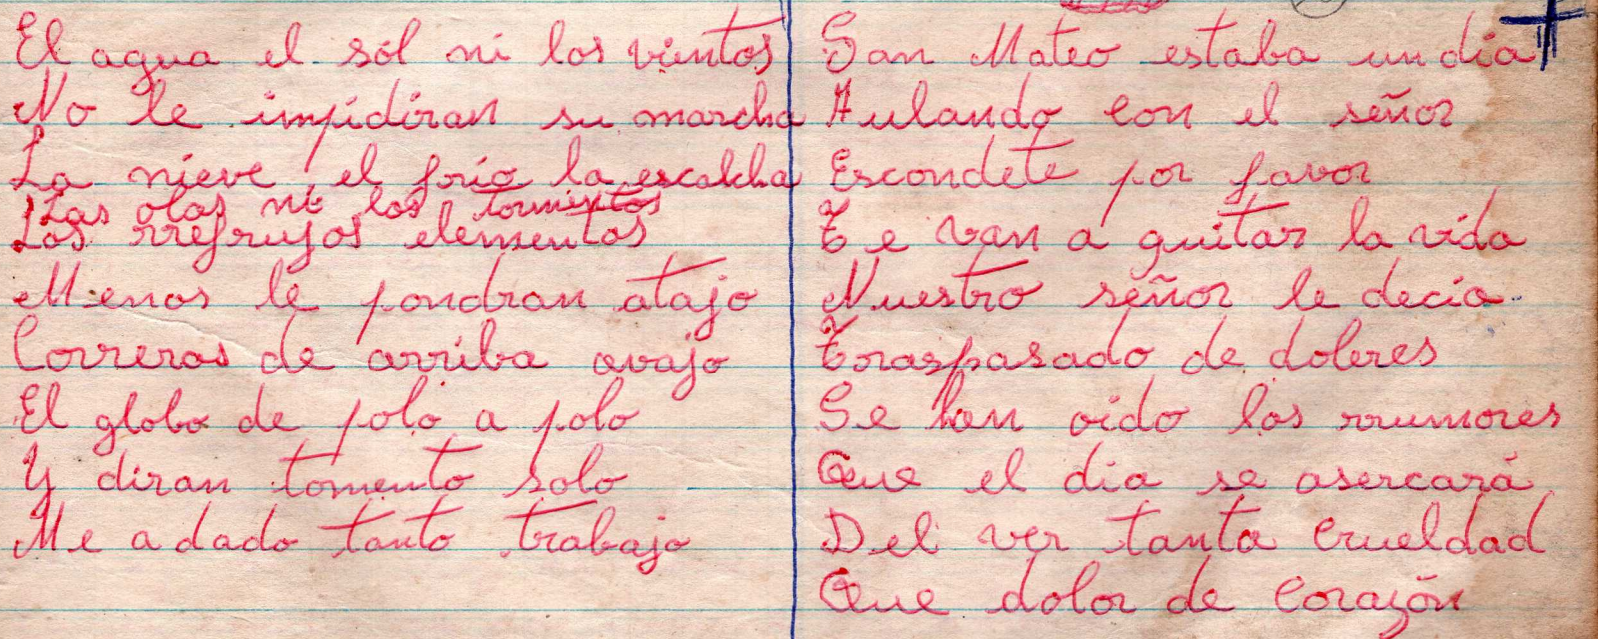 El agua el sol ni los vientos
No le impidiran su marcha
La nieve el frio la escalcha
Las olas ni los tormentos
Los rrefrujos elementos
Menos le pondran atajo
Correras de arriba avajo
El globo de polo a polo
Y diran tomento solo
Me a dado tanto trabajo
San Mateo estaba un dia
Aulando con el señor
Escondete por favor
Te van a quitar la vida
Nuestro señor le decia
Toraspasado de dolores
Se han oido los rrumores
Que el dia se asercará
Del ver tanta crueldad
Que dolor de corazón